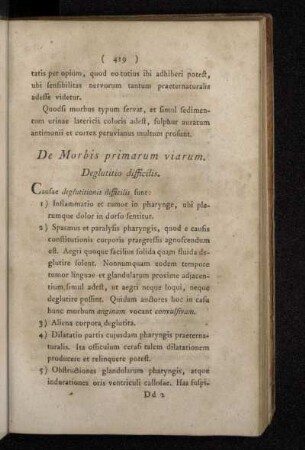 ( 419 )
tatis per opium, quod eo totius ibi adhiberi potest,
ubi sensibilitas nervorum tantum praeternaturalis
adesse videtur.
Quodsi morbus typum servat, et simul sedimen-
tum urinae lateritii coloris adest, sulphur auratum
antimonii et cortex peruvianus multum prosunt.
De Morbis primarum viarum.
Deglutitio difficilis.
Causae deglutitionis difficilis sunt:
1) Inflammatio et tumor in pharynge, ubi ple-
rumque dolor in dorso sentitur.
2) Spasmus et paralysis pharyngis, quod e causis
constitutionis corporis praegressis agnoscendum
est. Aegri quoque facilius solida quam fluida de-
glutire solent. Nonnumquam eodem tempore
tumor linguae et glandularum proxime adjacen-
tium, simul adest, ut aegri neque loqui, neque
deglutire possint. Quidam auctores hoc in casu
hunc morbum anginam vocant convulsivam.
3) Aliena corpora deglutita.
4) Dilatatio partis cujusdam pharyngis praeterna-
turalis. Ita officulum cerasi talem dilatationem
producere et relinquere potest.
5) Obstructiones glandularum pharyngis, atque
indurationes oris ventriculi callosae. Has suspi-
Dd 2